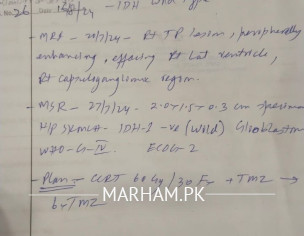 26
24 - IDH Wild type
- MRI - 20/7/24 - Rt TP lesion, peripherally
enhancing, effacing Rt Lat ventricle,
Rt capsuloganglionic region.
- MSR - 27/7/24 - 2.0x1.5x0.3 cm specimen
H/P SKMCH - IDH-1 -ve (Wild) Glioblastoma
WHO-G-IV. ECOG-2
- Plan - CCRT 60Gy/30 Fr + TMZ →
MARHAM.PK
6 - TMZ